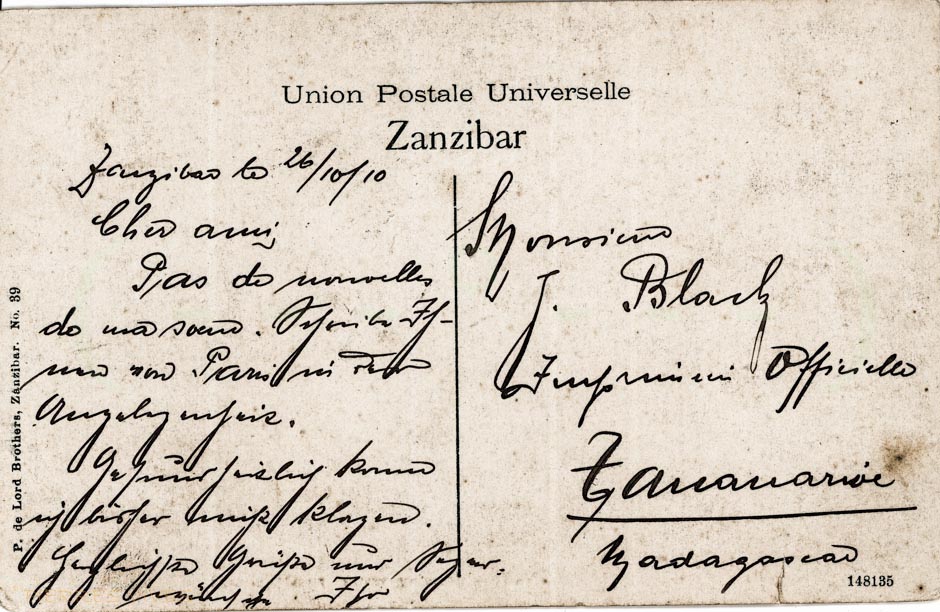 Union Postale Universelle
Zanzibar
Zanzibar le 26/10/10
Cher ami,
Pas de nouvelles
de ma soeur. Schreibe Ih-
nen von Paris in der
Angelegenheit.
Gesundheitlich kann
ich bisher nicht klagen.
Herzlichste Grüße und
wünsche Ihr
Monsieur
J. Black
Imprimerie Officielle
Tananarive
Madagascar
148135
P. de Lord Brothers, Zanzibar. No. 39